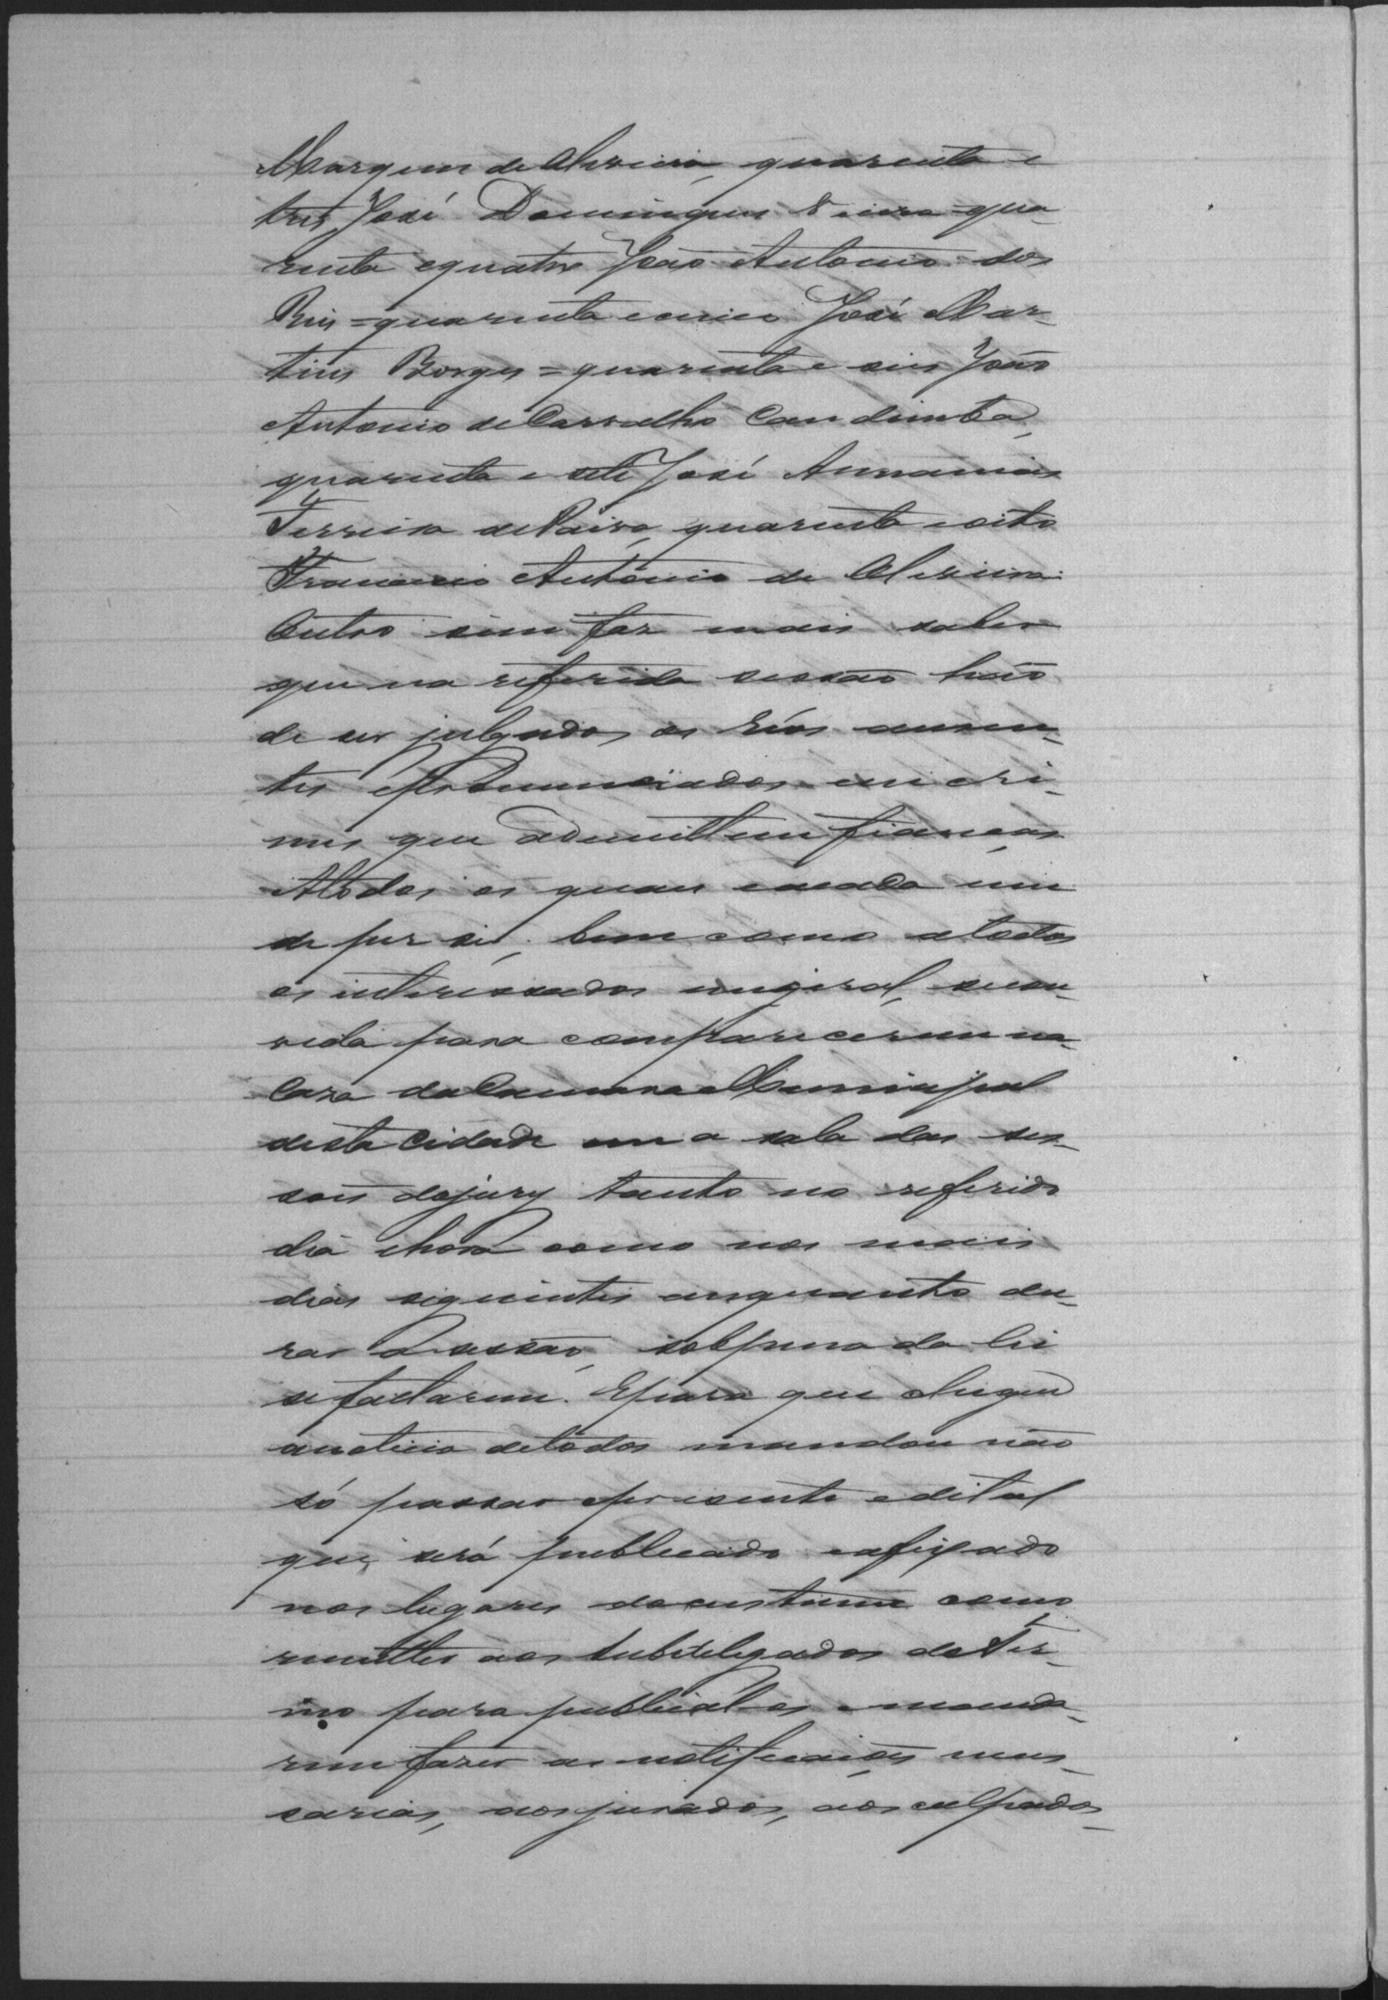 Marques de Oliveira, quarenta e
tres José Domingues Vieira = qua
renta equatro João Antonio dos
Reis = quarenta ecinco José Mar-
tins Borges = quarenta e seis João
Antonio de Carvalho Candimba,
quarenta e sete José Annanias
Ferreira dePaiva, quarenta eoito
Francisco Antonio de Oliveira.
Outro sim faz mais saber
que na referida sessão hão
de ser julgados os réos ausen-
tes epronunciados em cri-
mes que admittem fianças
Atodos os quaes ecada um
de per si, bem como atodos
os interessados emgeral, secon-
vida para comparecerem na
Caza daCamara Municipal
desta Cidade em a sala das ses-
sões dojury tanto no referido
dia ehora como nos mais
dias seguintes emquanto du-
rar a sessão, sobpena da lei
sefaltarem. Epara que chegue
anoticia detodos mandou não
só passar opresente edital
que será publicado eafixado
nos lugares docustume como
remetter aos subdelegados doTer-
mo para publical-os emanda-
rem fazer as notificaiões neces-
sarias, aos jurados, aos culpados